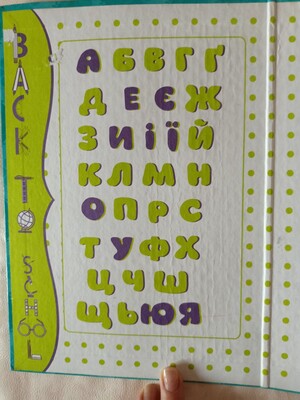 BACK TO SCHOOL
А Б В Г Ґ
Д Е Є Ж
З И І Ї Й
К Л М Н
О П Р С
Т У Ф Х
Ц Ч Ш
Щ Ь Ю Я